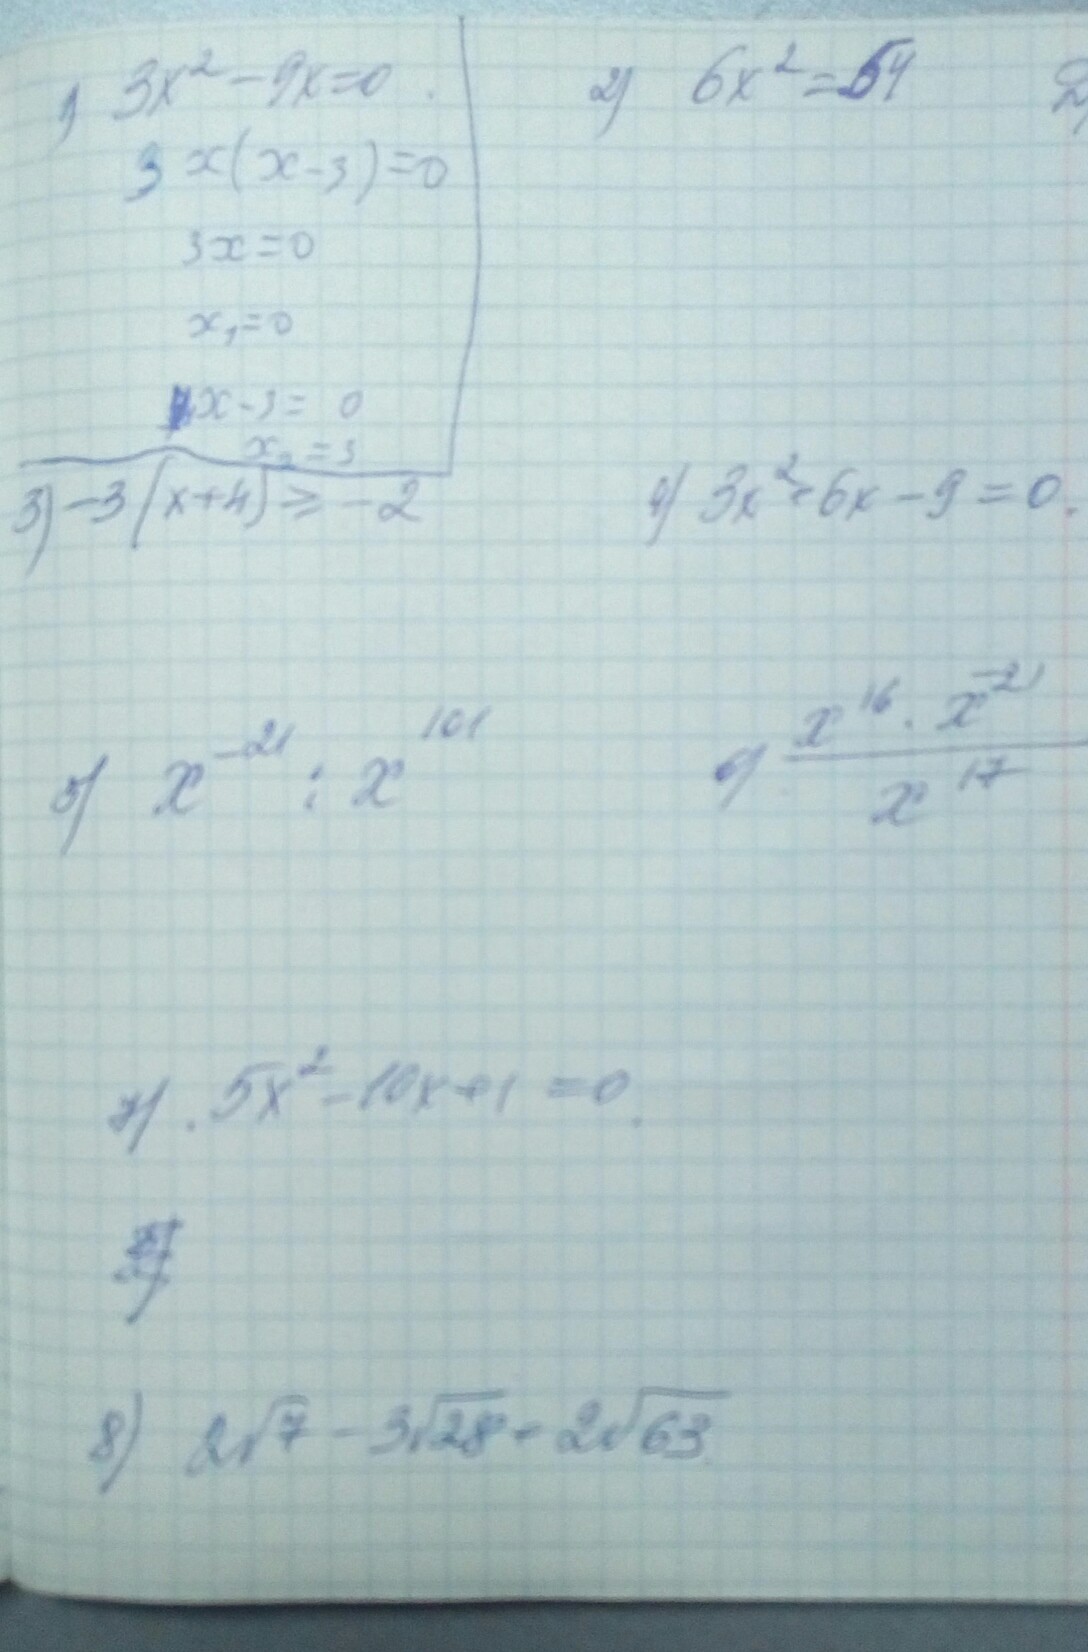 1) 3x² - 9x = 0.
3x(x-3) = 0
3x = 0
x₁ = 0
x-3 = 0
x₂ = 3
2) 6x² = 54
3) -3(x+4) ≥ -2
4) 3x² + 6x - 9 = 0.
5) x⁻²¹ : x¹⁰¹
6) x¹⁶ · x⁻²¹
x¹⁷
7) 5x² - 10x + 1 = 0.
8) 2√7 - 3√28 + 2√63